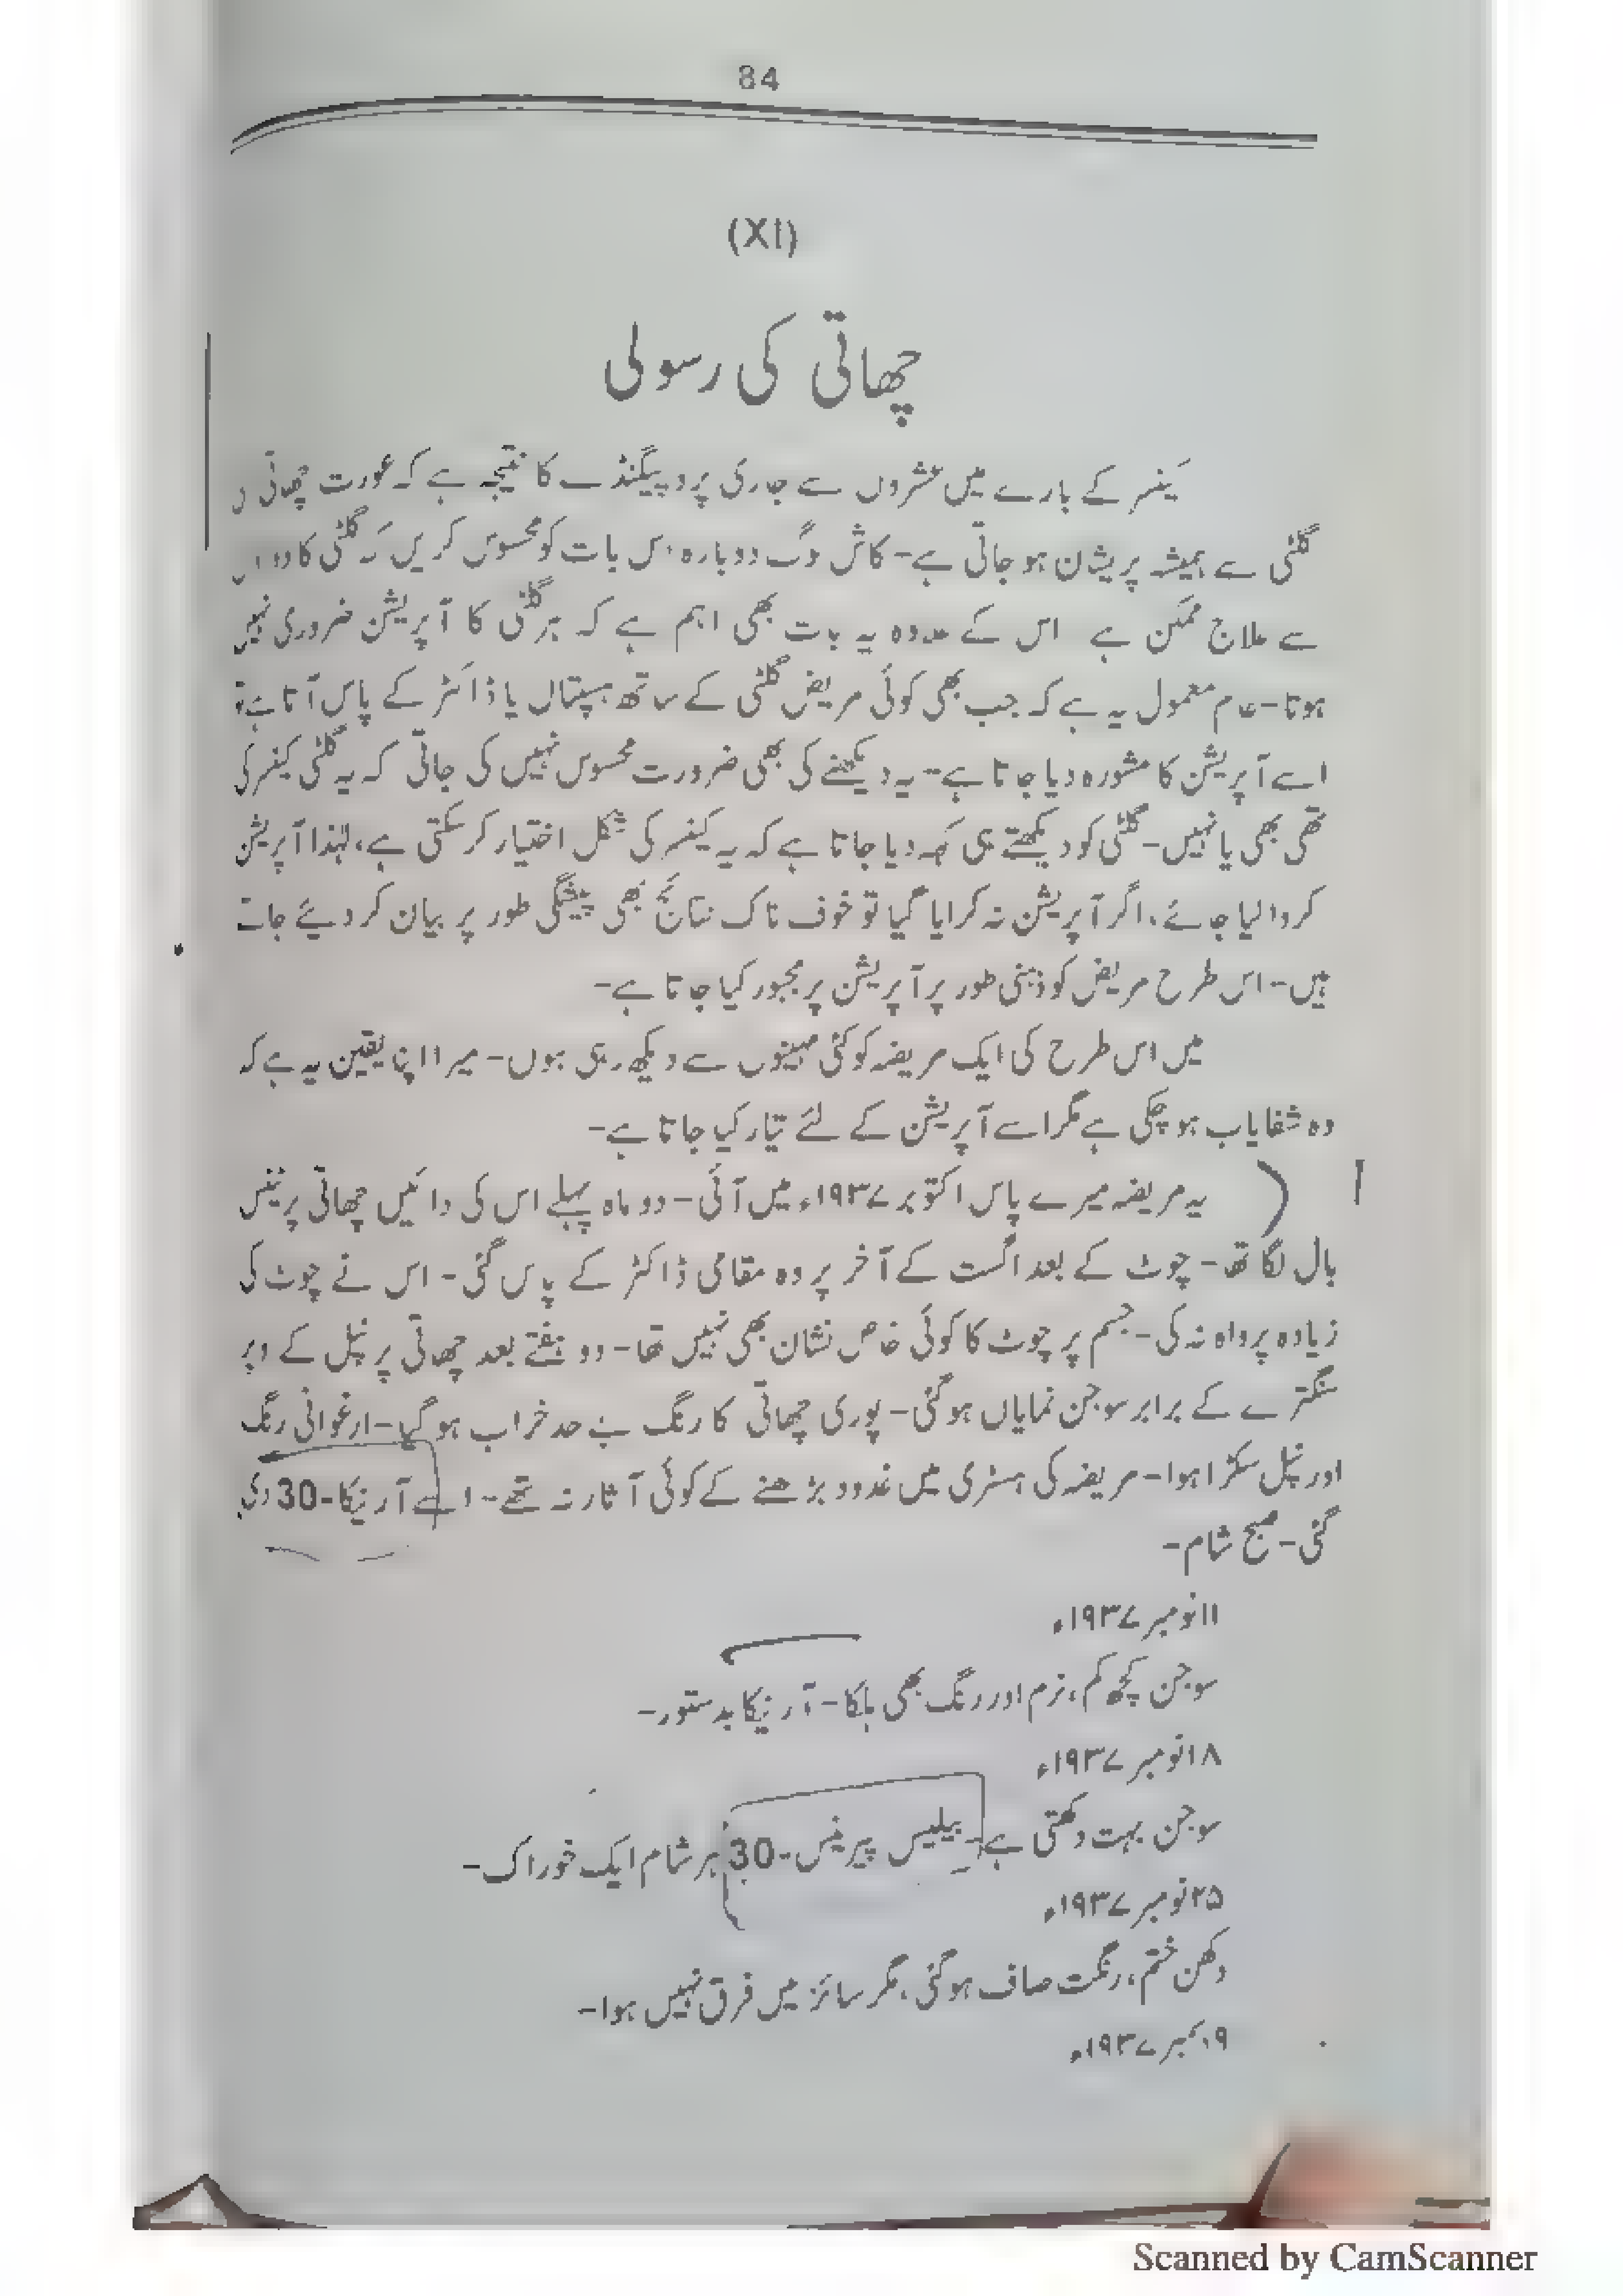 84
(XI)
چھاتی کی رسولی
کینسر کے بارے میں عشروں سے جاری پروپیگنڈے کا نتیجہ ہے کہ عورت چھاتی
گلٹی سے ہمیشہ پریشان ہو جاتی ہے- کاش لوگ دوبارہ اس بات کو محسوس کریں کہ گلٹی کا
سے علاج ممکن ہے اس کے علاوہ یہ بات بھی اہم ہے کہ ہر گلٹی کا آپریشن ضروری نہیں
ہوتا- عام معمول یہ ہے کہ جب بھی کوئی مریض گلٹی کے ساتھ ہسپتال یا ڈاکٹر کے پاس آتا ہے تو
اسے آپریشن کا مشورہ دیا جاتا ہے- یہ دیکھنے کی بھی ضرورت محسوس نہیں کی جاتی کہ یہ گلٹی کینسر کی
تھی بھی یا نہیں- گلٹی کو دیکھتے ہی کہہ دیا جاتا ہے کہ یہ کینسر کی شکل اختیار کر سکتی ہے، لہٰذا آپریشن
کروا لیا جائے، اگر آپریشن نہ کرایا گیا تو خوف ناک نتائج بھی پیشگی طور پر بیان کر دیئے جاتے
ہیں- اس طرح مریض کو ذہنی طور پر آپریشن پر مجبور کیا جاتا ہے-
میں اس طرح کی ایک مریضہ کو کئی مہینوں سے دیکھ رہی ہوں- میرا اپنا یقین یہ ہے کہ
وہ شفایاب ہو چکی ہے مگر اسے آپریشن کے لئے تیار کیا جاتا ہے-
یہ مریضہ میرے پاس اکتوبر ۱۹۳۷ء میں آئی- دو ماہ پہلے اس کی دائیں چھاتی پر ٹینس
بال لگا تھا- چوٹ کے بعد اگست کے آخر پر وہ مقامی ڈاکٹر کے پاس گئی- اس نے چوٹ کی
زیادہ پرواہ نہ کی- جسم پر چوٹ کا کوئی خاص نشان بھی نہیں تھا- دو ہفتے بعد چھاتی پر نپل کے اوپر
سنگترے کے برابر سوجن نمایاں ہو گئی- پوری چھاتی کا رنگ بے حد خراب ہو گیا- ارغوانی رنگ
اور نپل سکڑا ہوا- مریضہ کی ہسٹری میں غدود بڑھنے کے کوئی آثار نہ تھے- اسے آرنیکا-30 دی
گئی- صبح شام-
۱۱ نومبر ۱۹۳۷ء
سوجن کچھ کم، نرم اور رنگ بھی ہلکا- آرنیکا بدستور-
۱۸ نومبر ۱۹۳۷ء
سوجن بہت دکھتی ہے- بیلیس پیرینس-30 ہر شام ایک خوراک-
۲۵ نومبر ۱۹۳۷ء
دکھن ختم، رنگت صاف ہو گئی، مگر سائز میں فرق نہیں ہوا-
۹ دسمبر ۱۹۳۷ء
Scanned by CamScanner